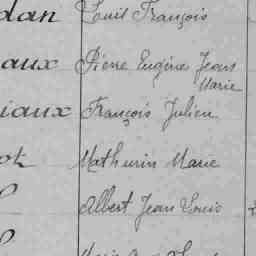 dan Louis François
aux Pierre Eugène Jean
Marie
iaux François Julien
ot Mathurin Marie
Albert Jean Louis